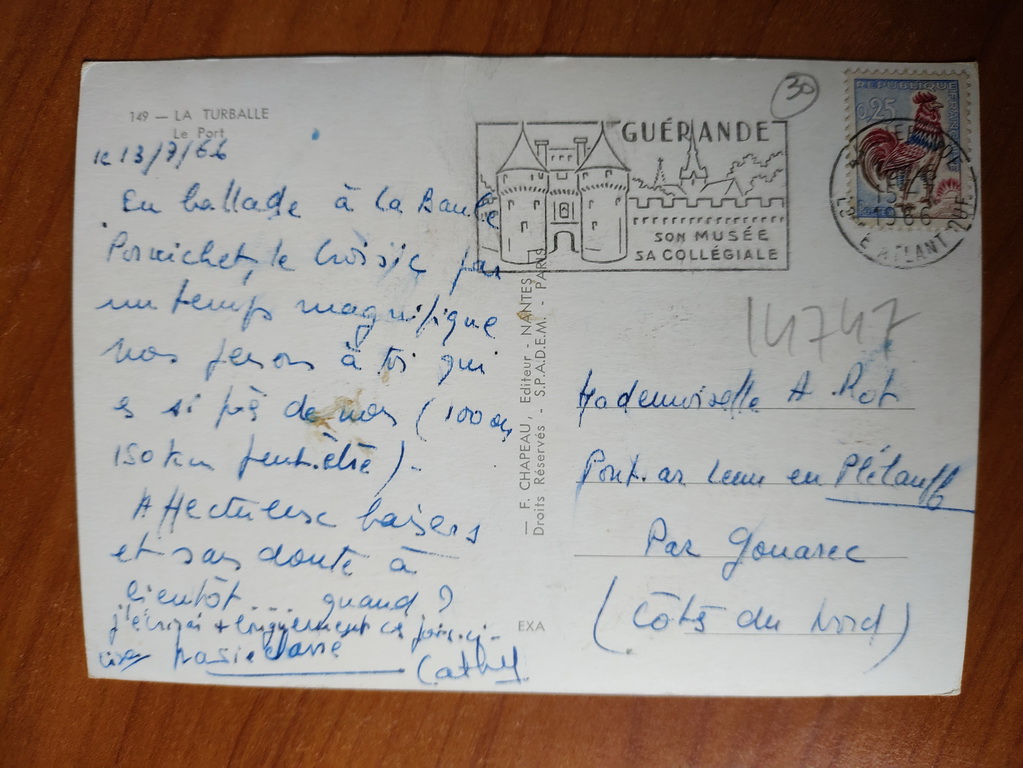 149 — LA TURBALLE
Le Port
le 13/7/66
En ballade à la Baule
Pornichet, le Croisic par
un temps magnifique
nos pensons à toi qui
es si près de nos (100 ou
150 km peut-être)-
Affectueux baisers
et sans doute à
bientôt.... quand?
j'écrirai + longuement ces jours-ci-
Cathy
— F. CHAPEAU, Editeur - NANTES
Droits Réservés - S.P.A.D.E.M. - PARIS
EXA
30
GUÉRANDE
SON MUSÉE
SA COLLÉGIALE
REPUBLIQUE FRANCAISE
0,25
1966
14747
Mademoiselle A Rot
Pont-ar Lenn en Plélauff
Par Gouarec
(Côtes du Nord)